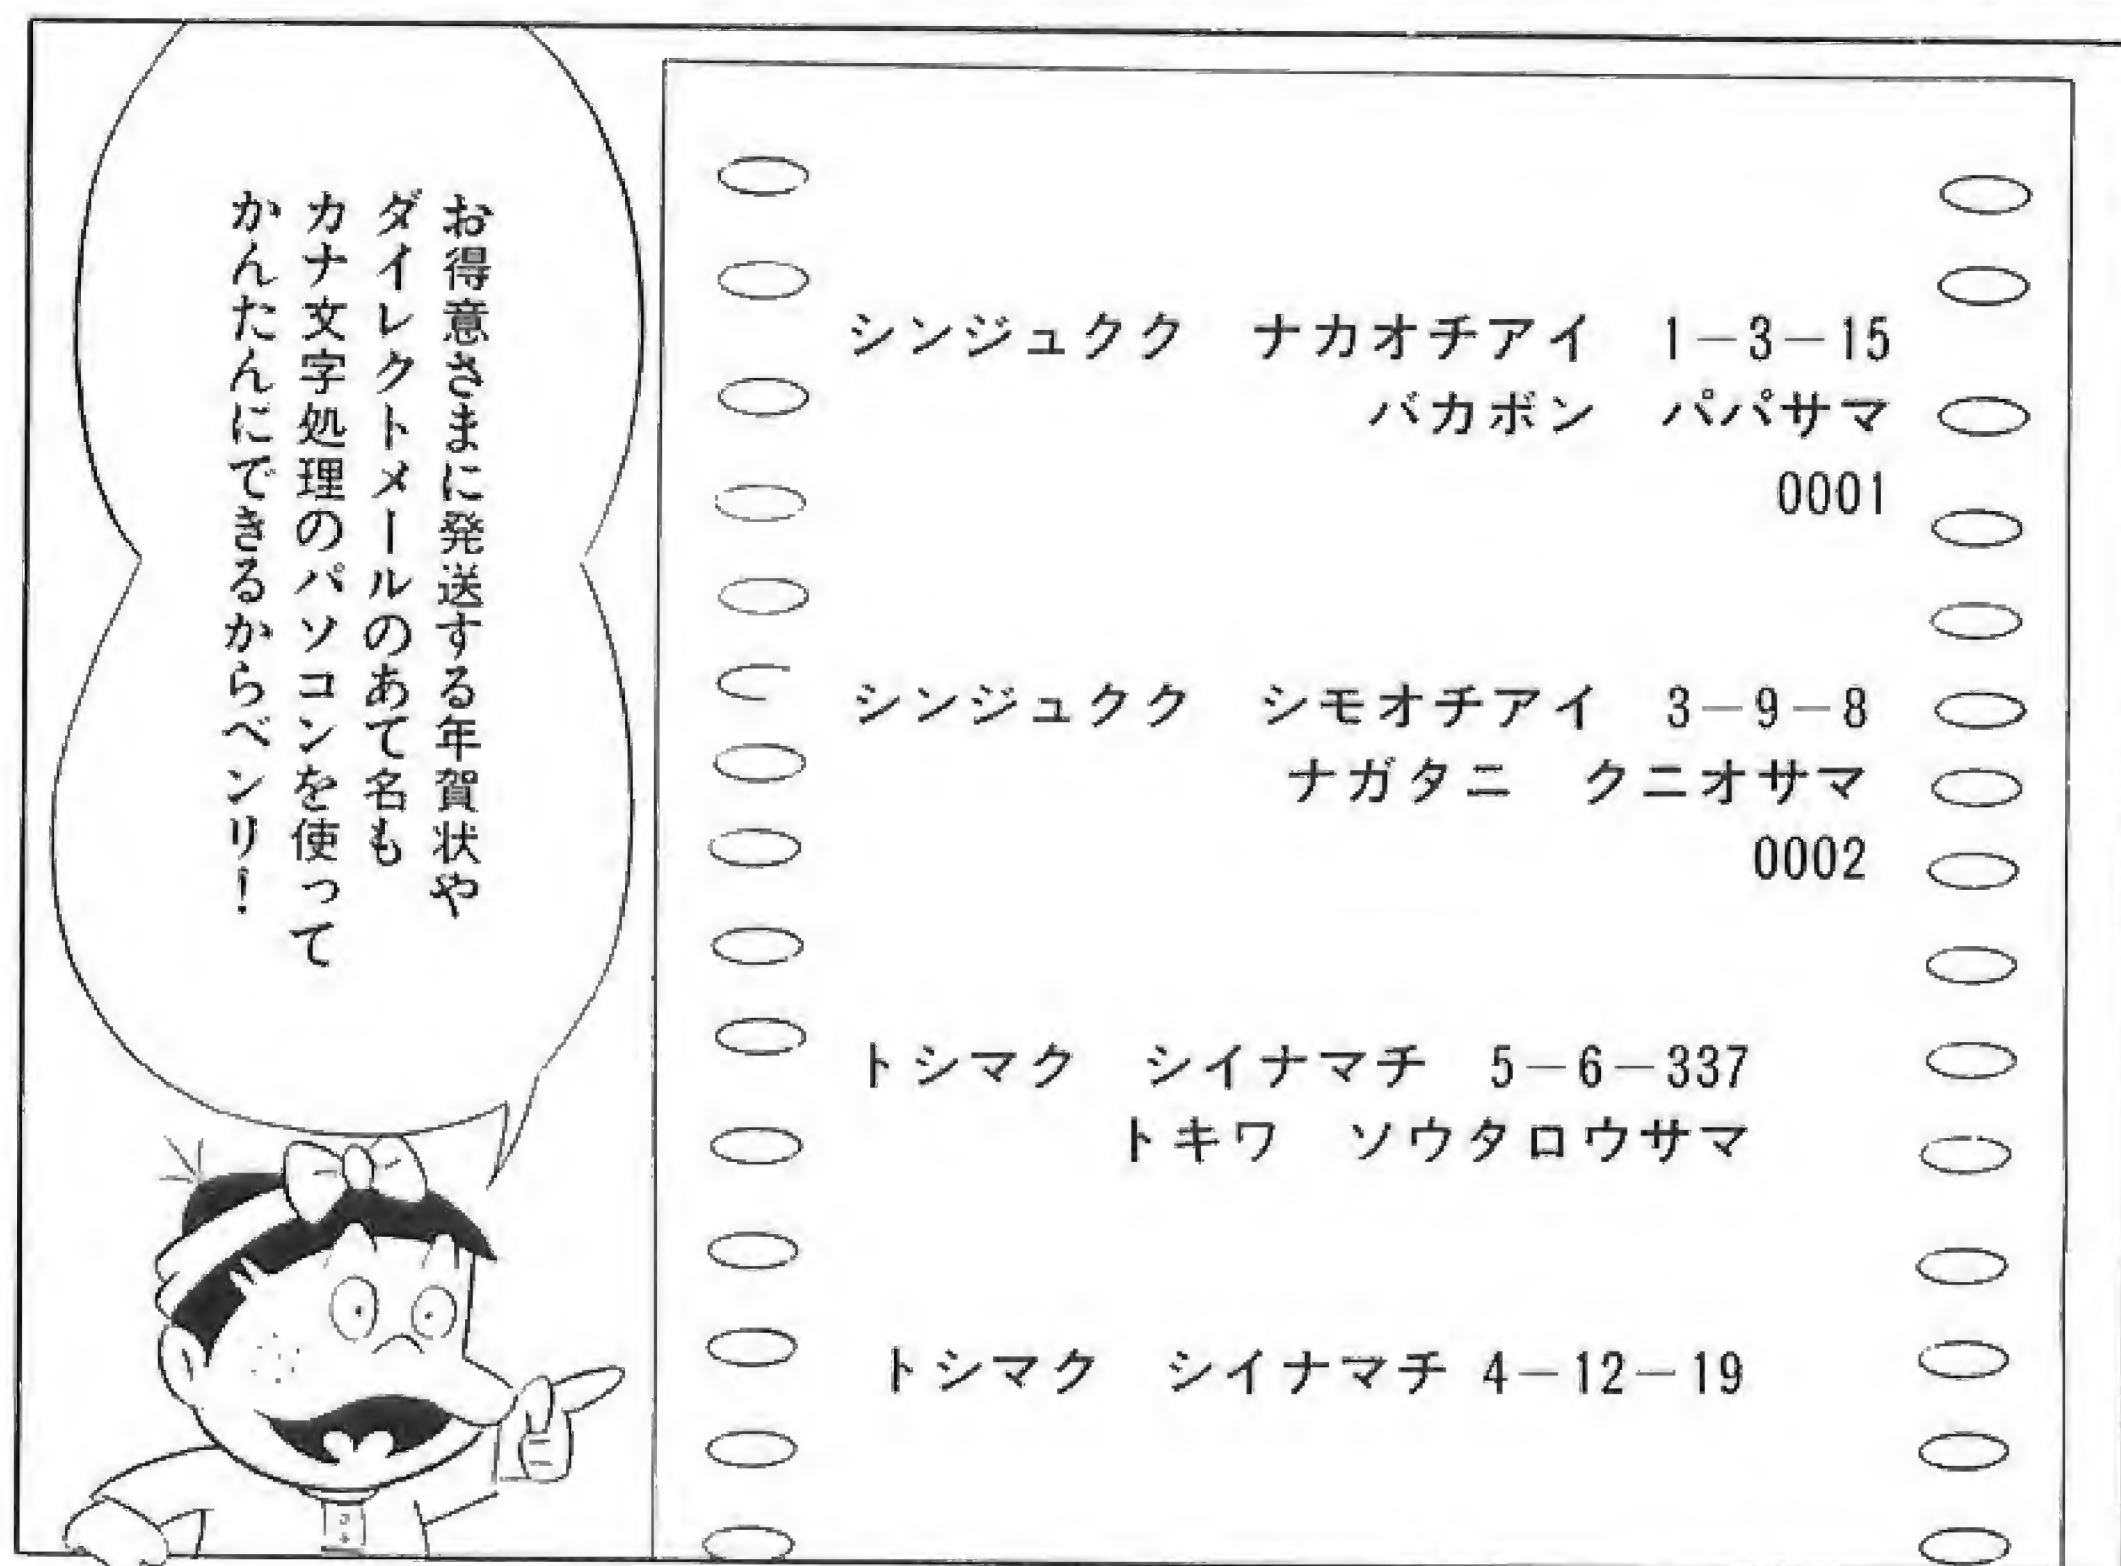 お得意さまに発送する年賀状や
ダイレクトメールのあて名も
カナ文字処理のパソコンを使って
かんたんにできるからベンリ!
シンジュクク ナカオチアイ 1-3-15
バカボン パパサマ
0001
シンジュクク シモオチアイ 3-9-8
ナガタニ クニオサマ
0002
トシマク シイナマチ 5-6-337
トキワ ソウタロウサマ
トシマク シイナマチ 4-12-19